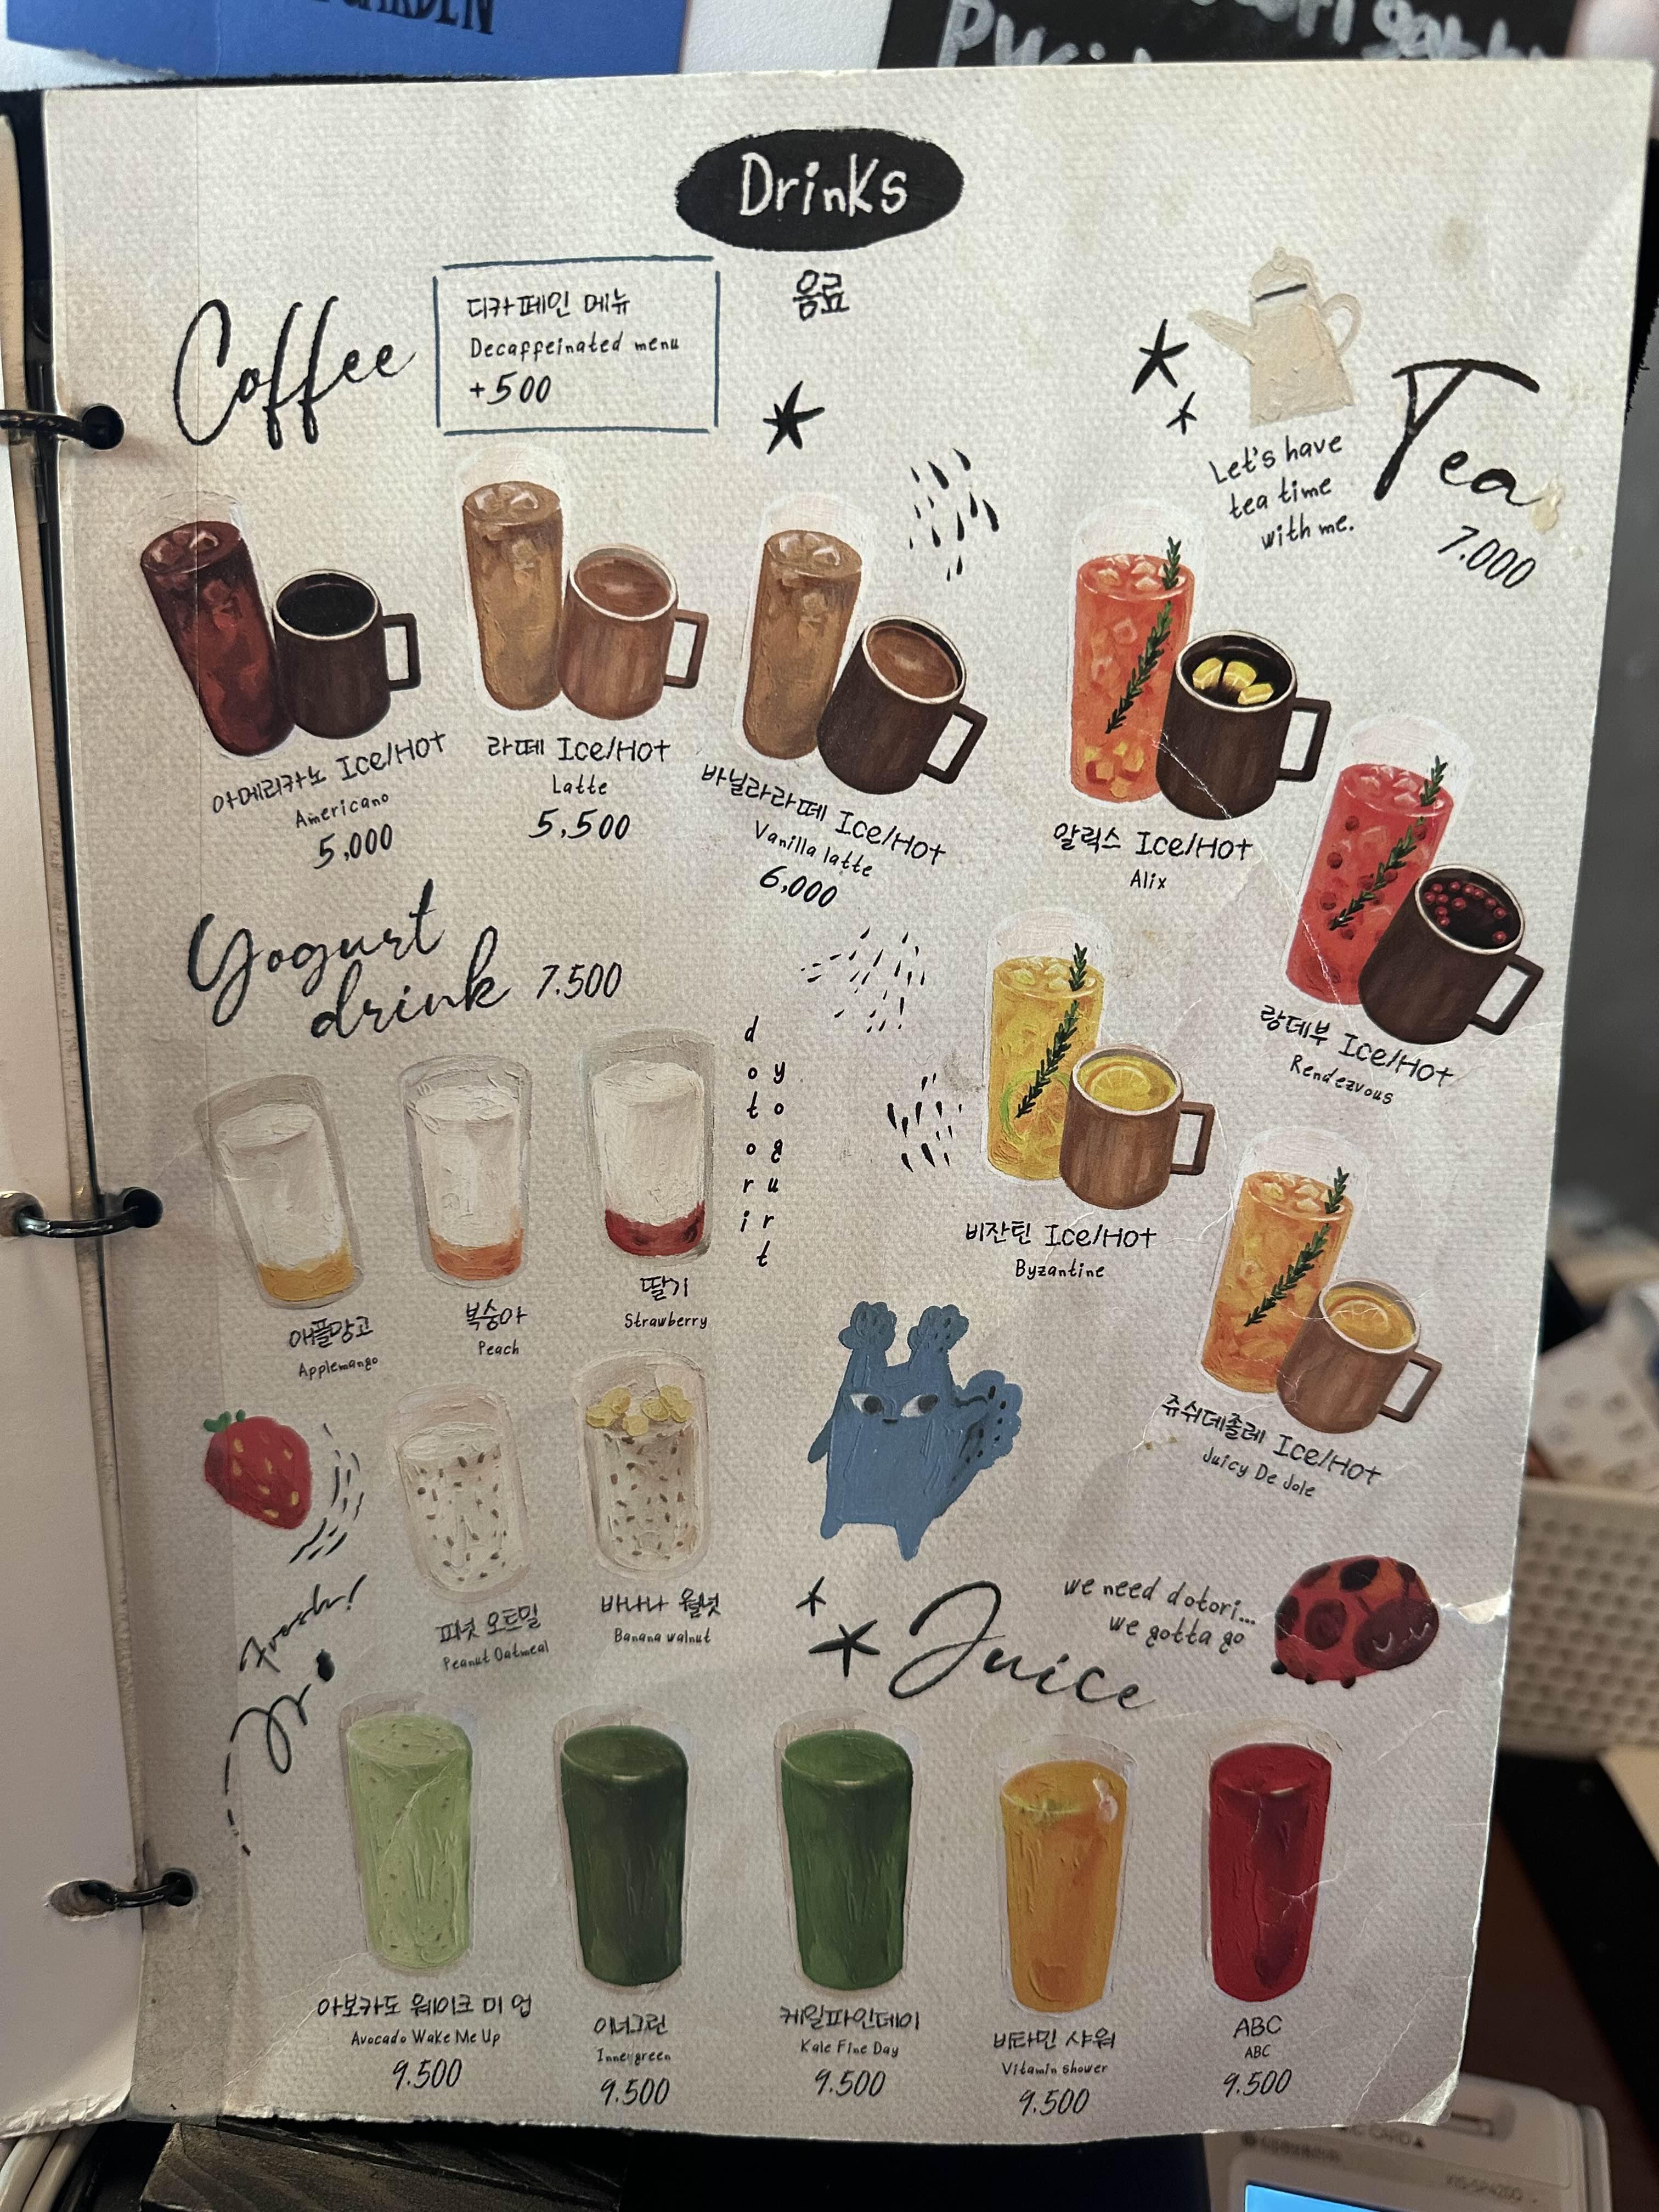 GARDEN
Drinks
음료
Coffee
디카페인 메뉴
Decaffeinated menu
+500
아메리카노 Ice/Hot
Americano
5,000
라떼 Ice/Hot
Latte
5,500
바닐라라떼 Ice/Hot
Vanilla latte
6,000
Let's have
tea time
with me.
Tea
7.000
알릭스 Ice/Hot
Alix
랑데부 Ice/Hot
Rendezvous
비잔틴 Ice/Hot
Byzantine
쥬쉬데졸레 Ice/Hot
Juicy De Jole
Yogurt
drink 7.500
dotori
yogurt
애플망고
Applemango
복숭아
Peach
딸기
Strawberry
피넛 오트밀
Peanut Oatmeal
바나나 월넛
Banana walnut
Fresh!
we need dotori...
we gotta go
Juice
아보카도 웨이크 미 업
Avocado Wake Me Up
9.500
이너그린
Innergreen
9.500
케일파인데이
Kale Fine Day
9.500
비타민 샤워
Vitamin shower
9.500
ABC
ABC
9.500